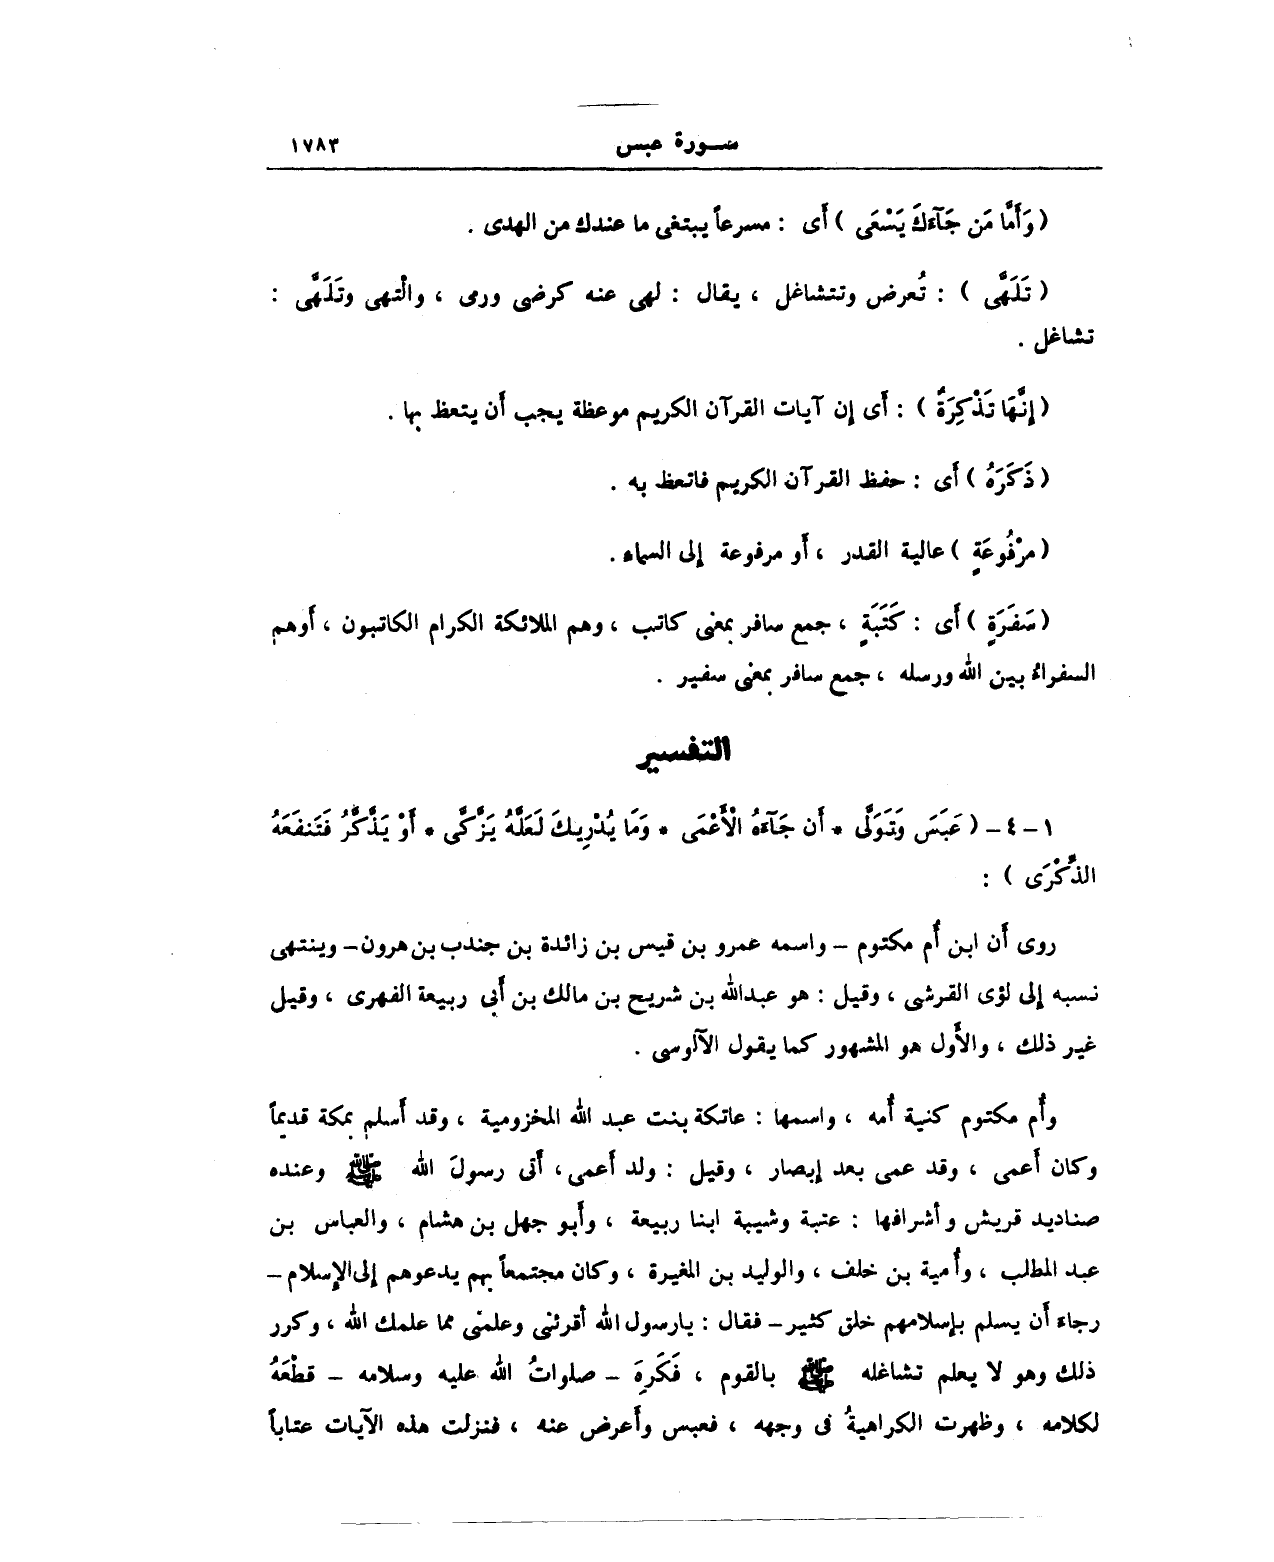 سورة عبس ١٧٨٣
( وَأَمَّا مَن جَآءَكَ يَسْعَى ) أَى : مسرعاً يبتغى ما عندك من الهدى .
( تَلَهَّى ) : تُعرض وتتشاغل ، يقال : لهى عنه كرضى ورمى ، والْتهى وتَلَهَّى :
تشاغل .
( إِنَّهَا تَذْكِرَةٌ ) : أَى إِن آيات القرآن الكريم موعظة يجب أَن يتعظ بها .
( ذَكَرَهُ ) أَى : حفظ القرآن الكريم فاتعظ به .
( مرْفُوعَةٍ ) عالية القدر ، أَو مرفوعة إِلى السماء .
( سَفَرَةٍ ) أَى : كَتَبَةٍ ، جمع سافر بمعنى كاتب ، وهم الملائكة الكرام الكاتبون ، أَوهم
السفراءُ بين الله ورسله ، جمع سافر بمعنى سفير .
التفسير
١ – ٤ – ( عَبَسَ وَتَوَلَّى * أَن جَآءَهُ الْأَعْمَى * وَمَا يُدْرِيكَ لَعَلَّهُ يَزَّكَّى * أَوْ يَذَّكَّرُ فَتَنفَعَهُ
الذِّكْرَى ) :
روى أَن ابن أُم مكتوم – واسمه عمرو بن قيس بن زائدة بن جندب بن هرون – وينتهى
نسبه إِلى لؤى القرشى ، وقيل : هو عبدالله بن شريح بن مالك بن أَبى ربيعة الفهرى ، وقيل
غير ذلك ، والأَول هو المشهور كما يقول الآلوسى .
وأُم مكتوم كنية أُمه ، واسمها : عاتكة بنت عبد الله المخزومية ، وقد أَسلم بمكة قديماً
وكان أَعمى ، وقد عمى بعد إِبصار ، وقيل : ولد أَعمى ، أَتى رسولَ الله ﷺ وعنده
صناديد قريش وأشرافها : عتبة وشيبة ابنا ربيعة ، وأَبو جهل بن هشام ، والعباس بن
عبد المطلب ، وأُمية بن خلف ، والوليد بن المغيرة ، وكان مجتمعاً بهم يدعوهم إِلى الإِسلام –
رجاء أَن يسلم بإِسلامهم خلق كثير – فقال : يارسول الله أقرئنى وعلمنى مما علمك الله ، وكرر
ذلك وهو لا يعلم تشاغله ﷺ بالقوم ، فَكَرِهَ – صلواتُ الله عليه وسلامه – قطْعَهُ
لكلامه ، وظهرت الكراهيةُ فى وجهه ، فعبس وأَعرض عنه ، فنزلت هذه الآيات عتاباً